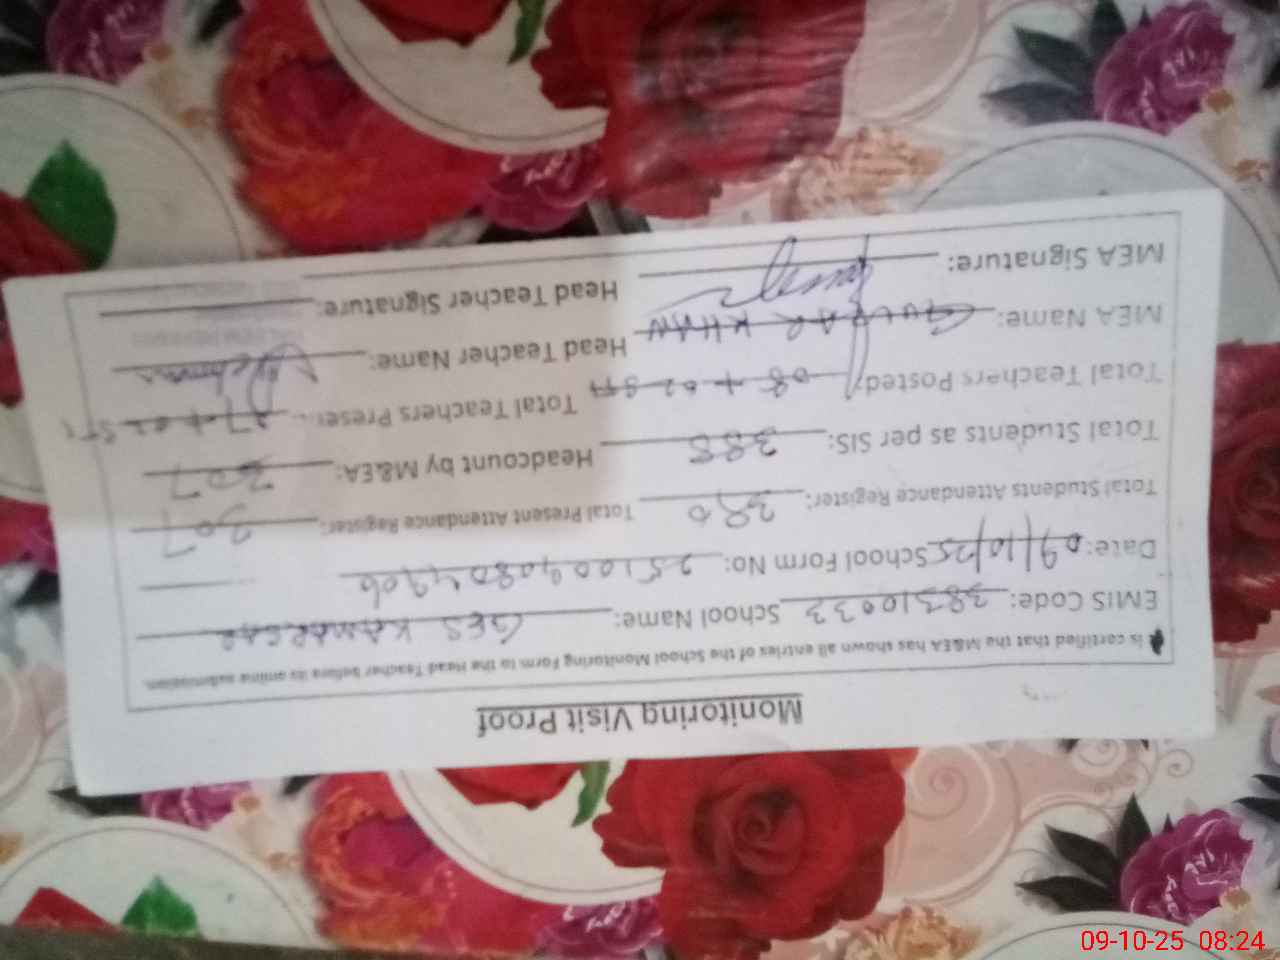 Monitoring Visit Proof
is certified that the M&EA has shown all entries of the School Monitoring Form to the Head Teacher before its online submission.
EMIS Code: 38310033 School Name: GES KAMARGAR
Date: 09/10/25 School Form No: 2510090804906
Total Students Attendance Register: 380 Total Present Attendance Register: 307
Total Students as per SIS: 388 Headcount by M&EA: 307
Total Teachers Posted: 08 + 02 Total Teachers Present: 07 + 02
MEA Name: GULZAR KHAN Head Teacher Name:
MEA Signature: Head Teacher Signature:
09-10-25 08:24